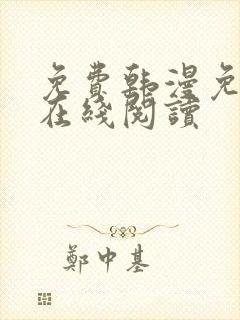 免費韩漫免
在綫閱讀
鄭中基